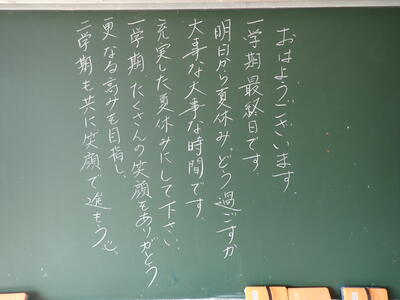 おはようございます。
一学期最終日です。
明日から夏休み。どう過ごすか
大事な大事な時間です。
充実した夏休みにして下さい。
一学期、たくさんの笑顔をありがとう。
更なる高みを目指し、
二学期も共に笑顔で進もう。